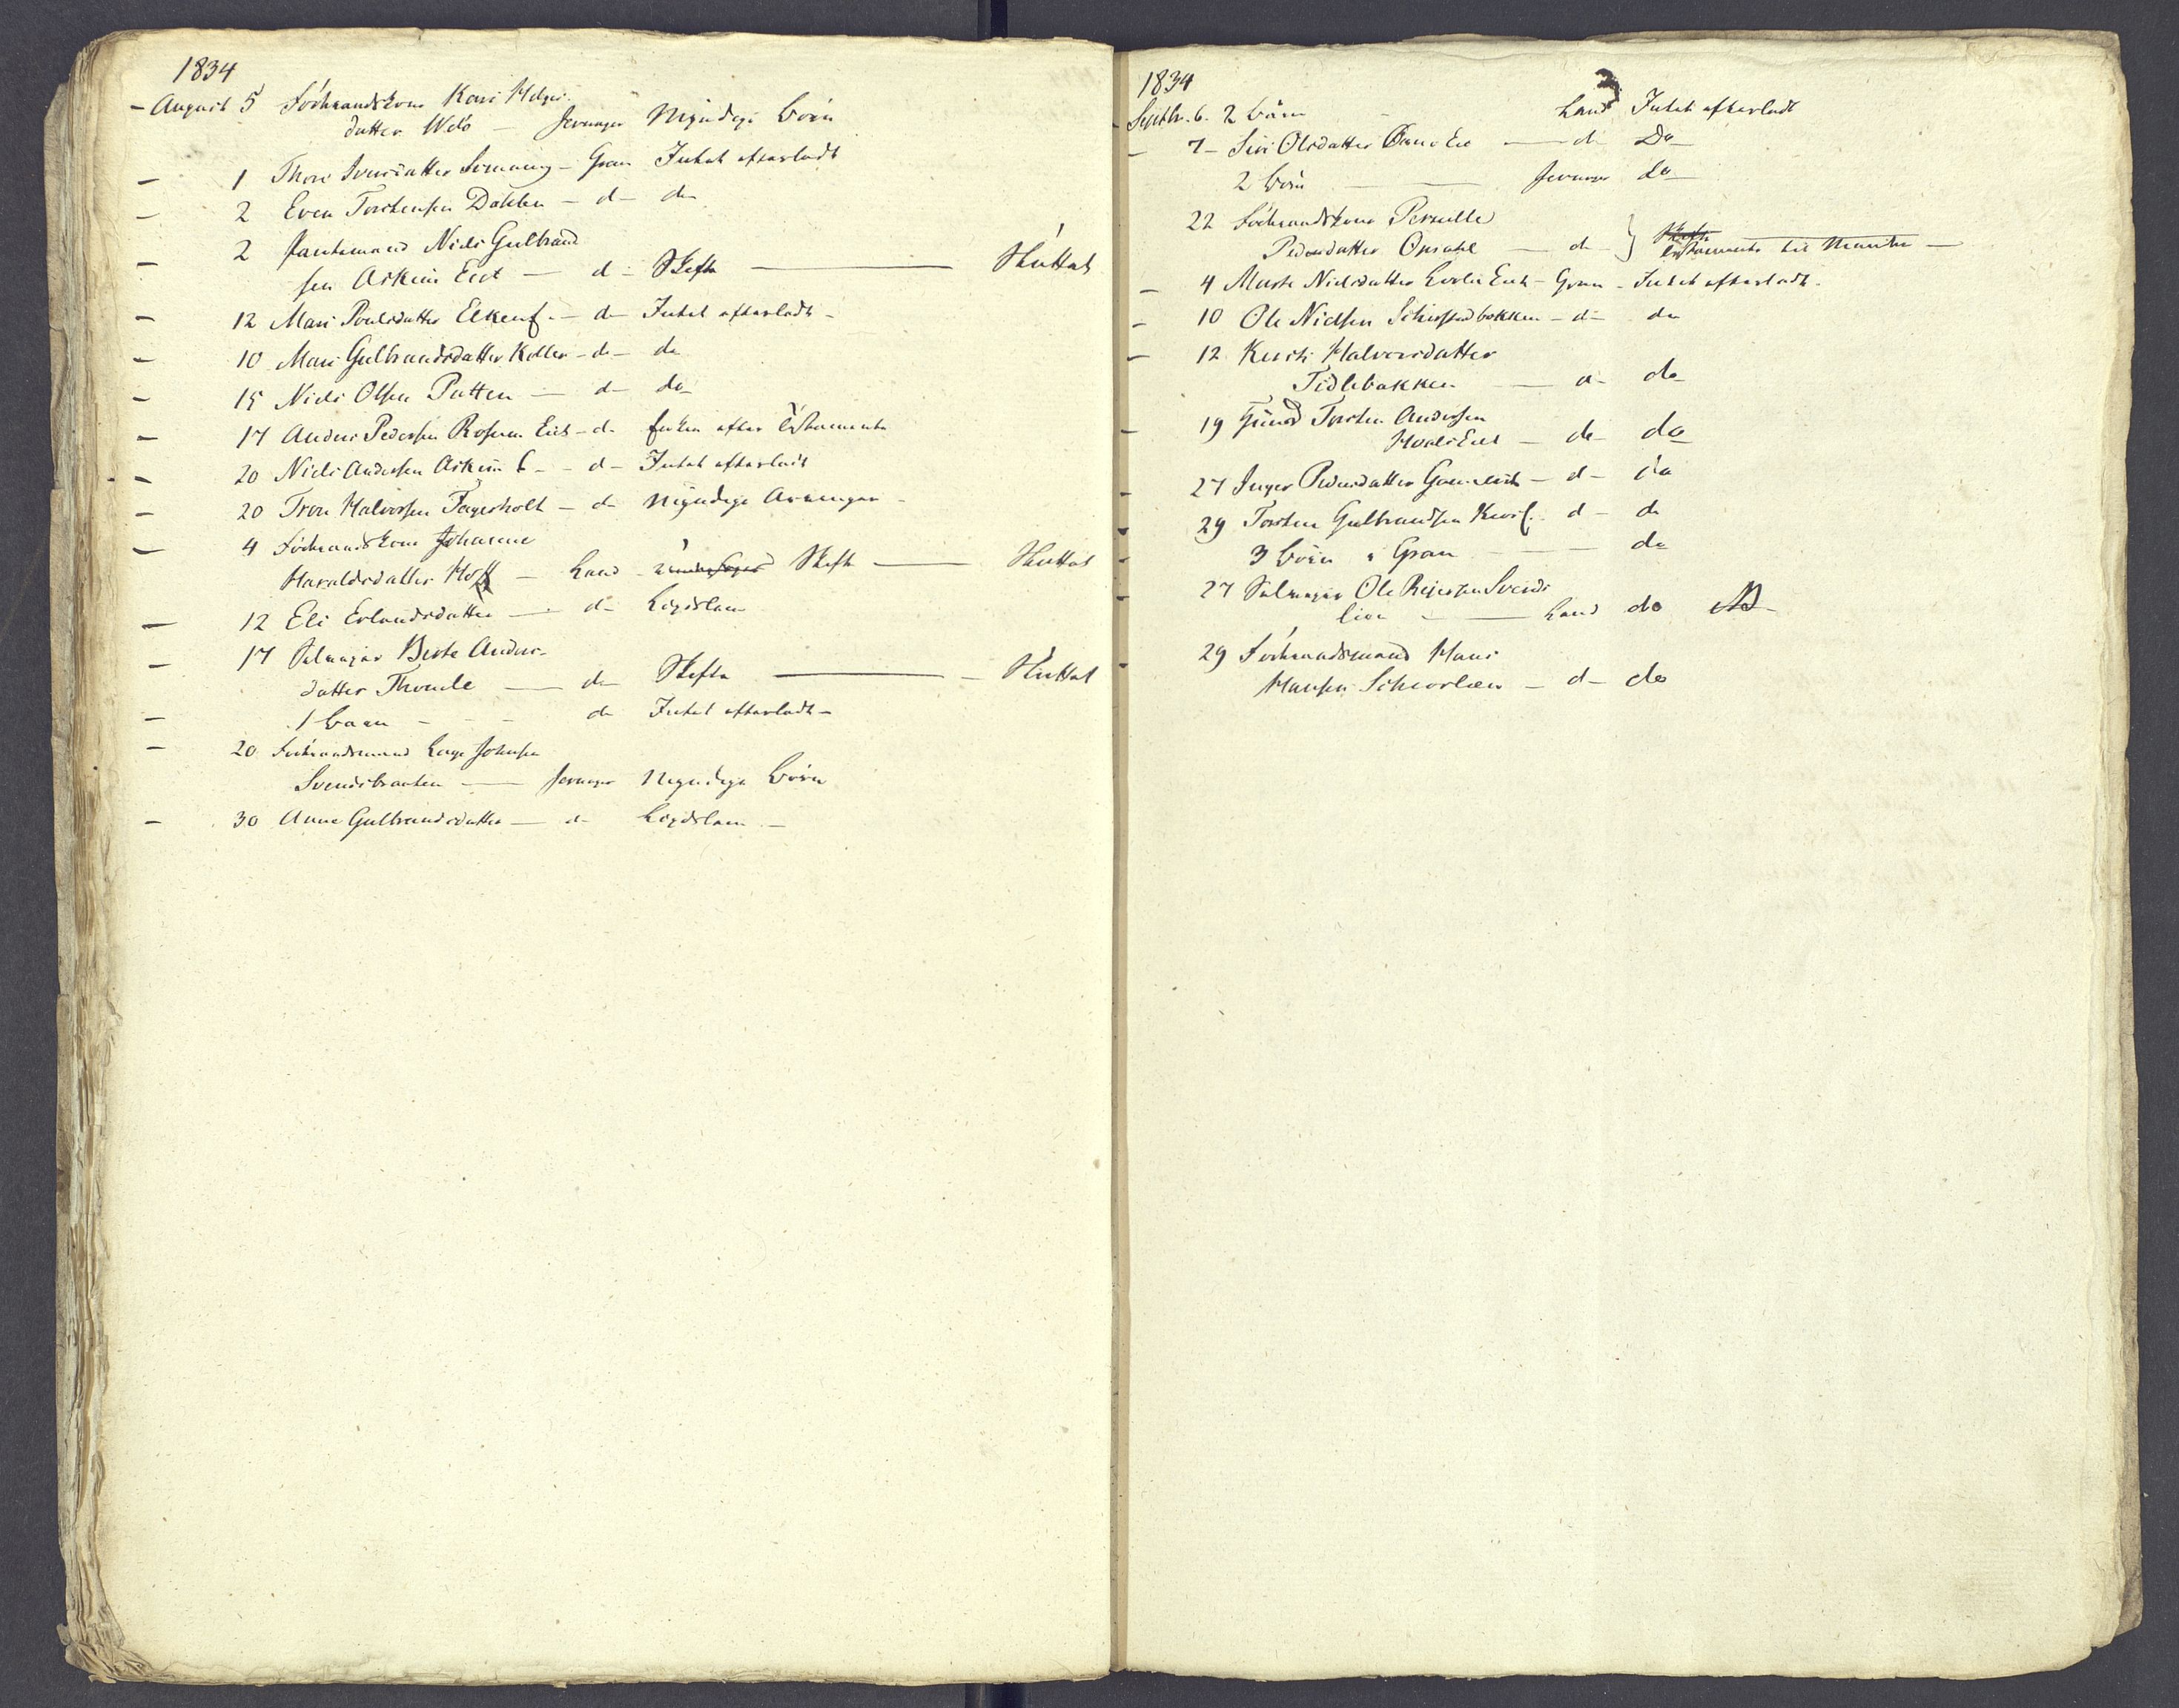 1834
- August 5 Födraadskone Kari Helges-
datter Welo - Jevnager Myndige Börn
- 1 Thore Iversdatter - Gran Intet efterladt
- 2 Even Torstensen Dahlen - d- do
- 2 Niels Gulbrand
sen Askim Eiet - d- Skifte - Sluttet
- 12 Mari Poulsdatter - d- Intet efterladt -
- 10 Mari Gulbrandsdatter Koller - d- do
- 15 Niels Olsen Putten - d- do
- 17 Anders Pedersen Eiet - d- Enken efter Testamente
- 20 Niels Andersen Askim E - d- Intet efterladt
- 20 Tron Halvorsen Fagerholt - d- Myndige Arvinger -
- 4 Födraadskone Johanne
Haraldsdatter Hoff - Land Skifte - Sluttet
- 12 Eli Erlandsdatter - d- Legdslem
- 17 Selvejer Berte Anders-
datter Thomle - do Skifte - Sluttet
- 1 Barn - do Intet efterladt -
- 20 Födraadsmand Lage Johnsen
Svendsbraaten - Jevnager Myndige Börn
- 30 Anne Gulbrandsdatter - d- Legdslem -
1834
- Septbr. 6. 2 Börn - Land Intet efterladt
- 7 - Siri Olsdatter - d- Do
2 Börn - Jevnager do
22 Födraadskone Pernille
Pedersdatter Opsahl - d- } Skifte Testamente til Manden -
- 4 Marte Nielsdatter Eiet - Gran - Intet efterladt.
- 10 Ole Nielsen - d- do
- 12 Kersti Halvorsdatter
Tidlebakken - d- do
- 19 Torsten Andersen
Eiet - do do
- 27 Inger Pedersdatter - d- do
- 29 Torsten Gulbrandsen - d- do
- 3 Börn i Gran - do
- 27 Selvejer Ole Reiersen Svends
lien - Land do
- 29 Födraadsmand Hans
Hansen - d- do